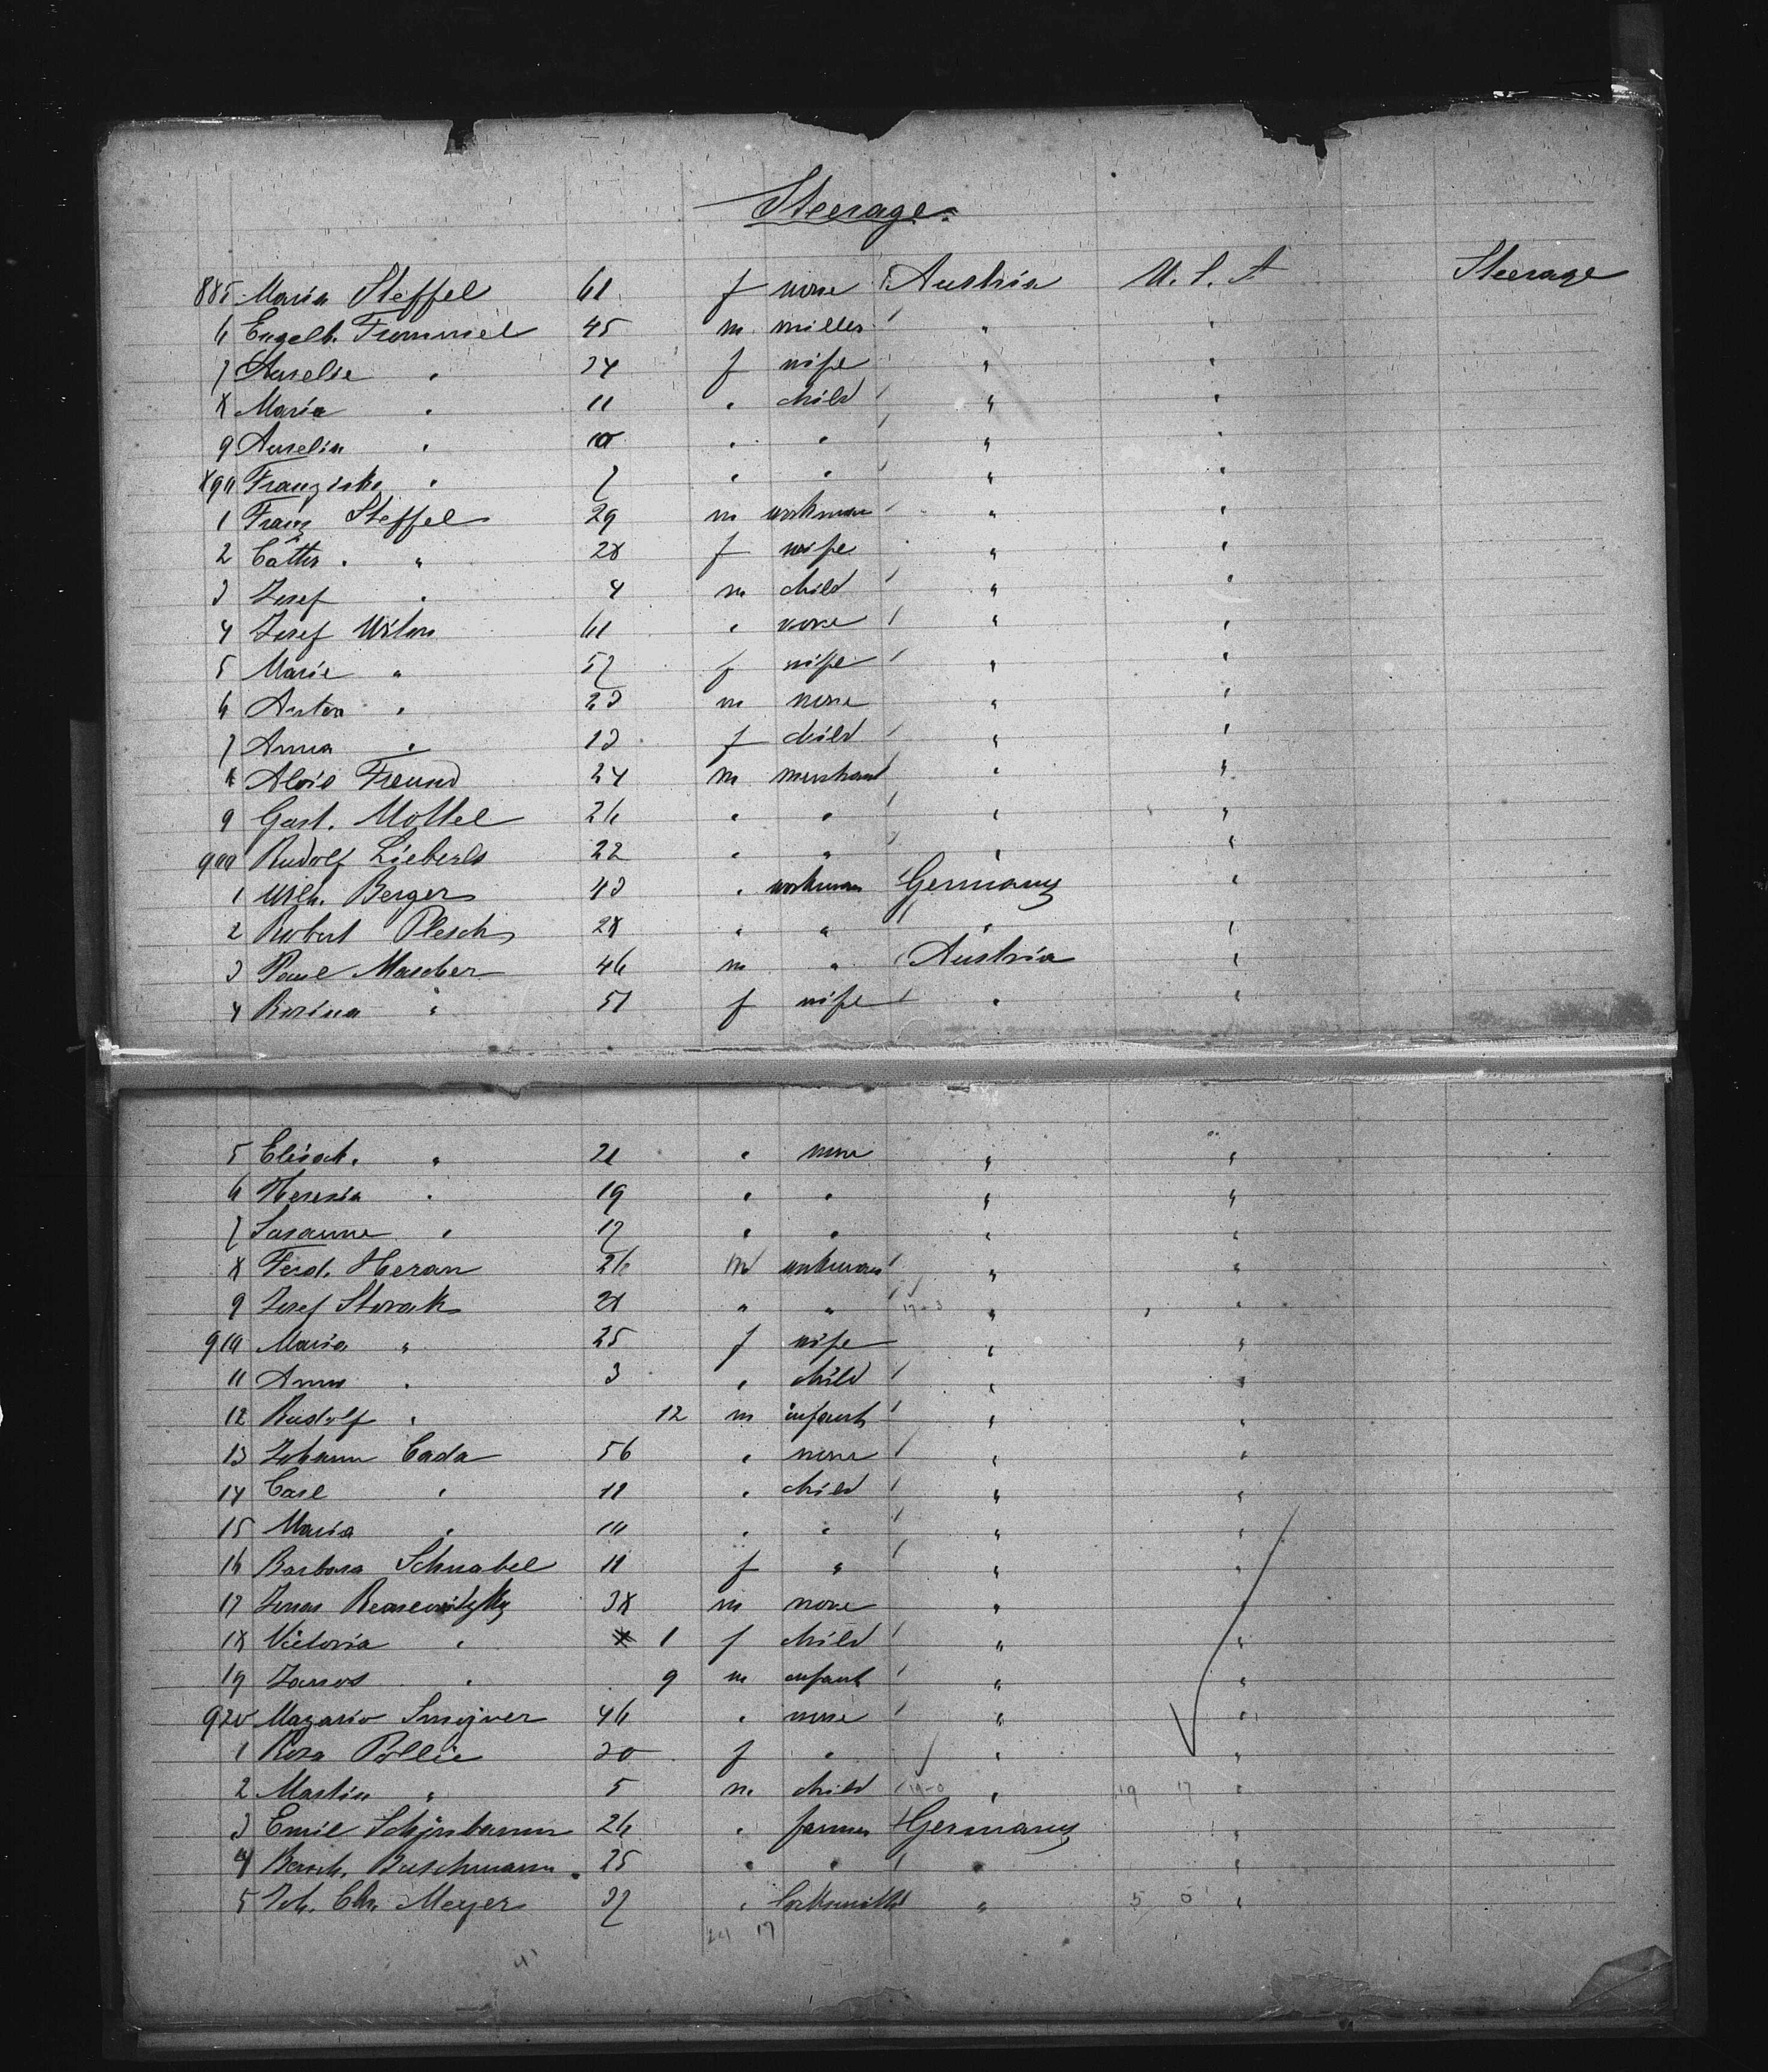 Steerage
885 Maria Steffel 61 f none Austria U. S. A Steerage
6 Engelb. Frommel 45 m miller " "
7 Aurelie " 34 f wife " "
8 Maria " 11 " child " "
9 Aurelia " 10 " " " "
890 Franziska " 7 " " " "
1 Franz Steffel 29 m workman " "
2 Cath. " 28 f wife " "
3 Josef " 4 m child " "
4 Josef 61 " none " "
5 Marie " 57 f wife " "
6 Anton " 23 m none " "
7 Anna " 13 f child " "
8 Alois Freund 24 m merchant " "
9 Gust. Mottel 26 " " " "
900 Rudolf 22 " " " "
1 Wilh. Berger 43 " workman Germany "
2 Robert Plesch 28 " " " "
3 Paul Mascher 46 m " Austria "
4 Rosina " 51 f wife " "
5 Elisab. " 21 " none " "
6 Theresia " 19 " " " "
7 Susanne " 17 " " " "
8 Ferd. Heran 26 m workman " "
9 Josef Slovak 28 " " 17-3 " "
910 Maria " 25 f wife " "
11 Anna " 3 " child " "
12 Rudolf " 12 m infant " "
13 Johann Cada 56 " none " "
14 Carl " 11 " child " "
15 Maria " 10 " " " "
16 Barbara Schnabel 11 f " " "
17 38 m none " "
18 Victoria " 1 f child " "
19 Janos " 9 m infant " "
920 46 " none " "
1 Rosa Pollic 30 f " " "
2 Martin " 5 m child 19-0 " 19 17 "
3 Emil 26 " farmer Germany "
4 Buschmann 25 " " " "
5 Joh. Chr. Meyer 37 " locksmith " 5 0 "
24 17